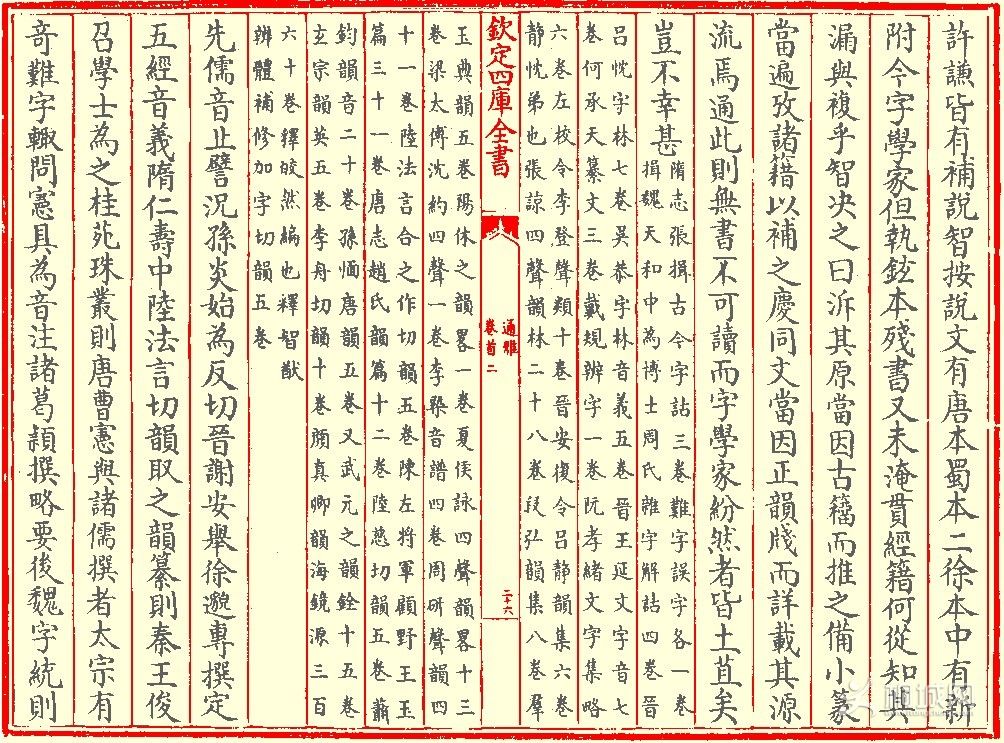 許謙皆有補說智按說文有唐本蜀本二徐本中有新
附今字學家但執鉉本殘書又未淹貫經籍何從知其
漏與複乎智決之曰泝其原當因古籀而推之備小篆
當遍攷諸籍以補之慶同文當因正韻牋而詳載其源
流焉通此則無書不可讀而字學家紛然者皆土苴矣
豈不幸甚
隋志張揖古今字詁三卷難字誤字各一卷
揖魏天和中為博士周氏雜字解詁四卷晉
呂忱字林七卷吴恭字林音義五卷晉王延文字音七
卷何承天纂文三卷戴規辨字一卷阮孝緒文字集略
六卷左校令李登聲類十卷晉安復令呂靜韻集六卷
靜忱弟也張諒四聲韻林二十八卷段弘韻集八卷羣
欽定四庫全書
通雅
卷首二
二十六
玉典韻五卷陽休之韻畧一卷夏侯詠四聲韻畧十三
卷梁太傅沈約四聲一卷李槩音譜四卷周研聲韻四
十一卷陸法言合之作切韻五卷陳左將軍顧野王玉
篇三十一卷唐志趙氏韻篇十二卷陸慈切韻五卷蕭
鈞韻音二十卷孫愐唐韻五卷又武元之韻銓十五卷
玄宗韻英五卷李舟切韻十卷顏真卿韻海鏡源三百
六十卷釋皎然編也釋智猷
辨體補修加字切韻五卷
先儒音止譬況孫炎始為反切晉謝安舉徐邈專撰定
五經音義隋仁壽中陸法言切韻取之韻纂則秦王俊
召學士為之桂苑珠叢則唐曹憲與諸儒撰者太宗有
奇難字輙問憲具為音注諸葛潁撰略要後魏字統則